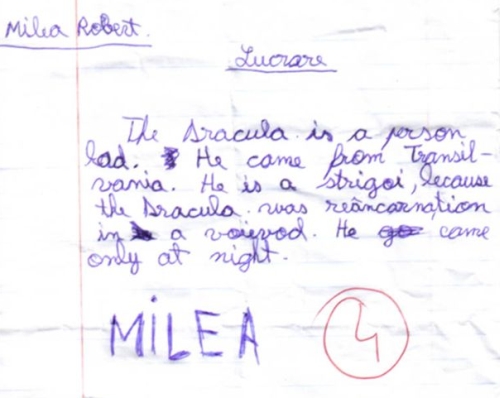 Milea Robert.
Lucrare
The Dracula is a person
bad. He came from Transil-
vania. He is a strigoi, because
the Dracula was reâncarnation
in a voievod. He came
only at night.
MiLEA
4